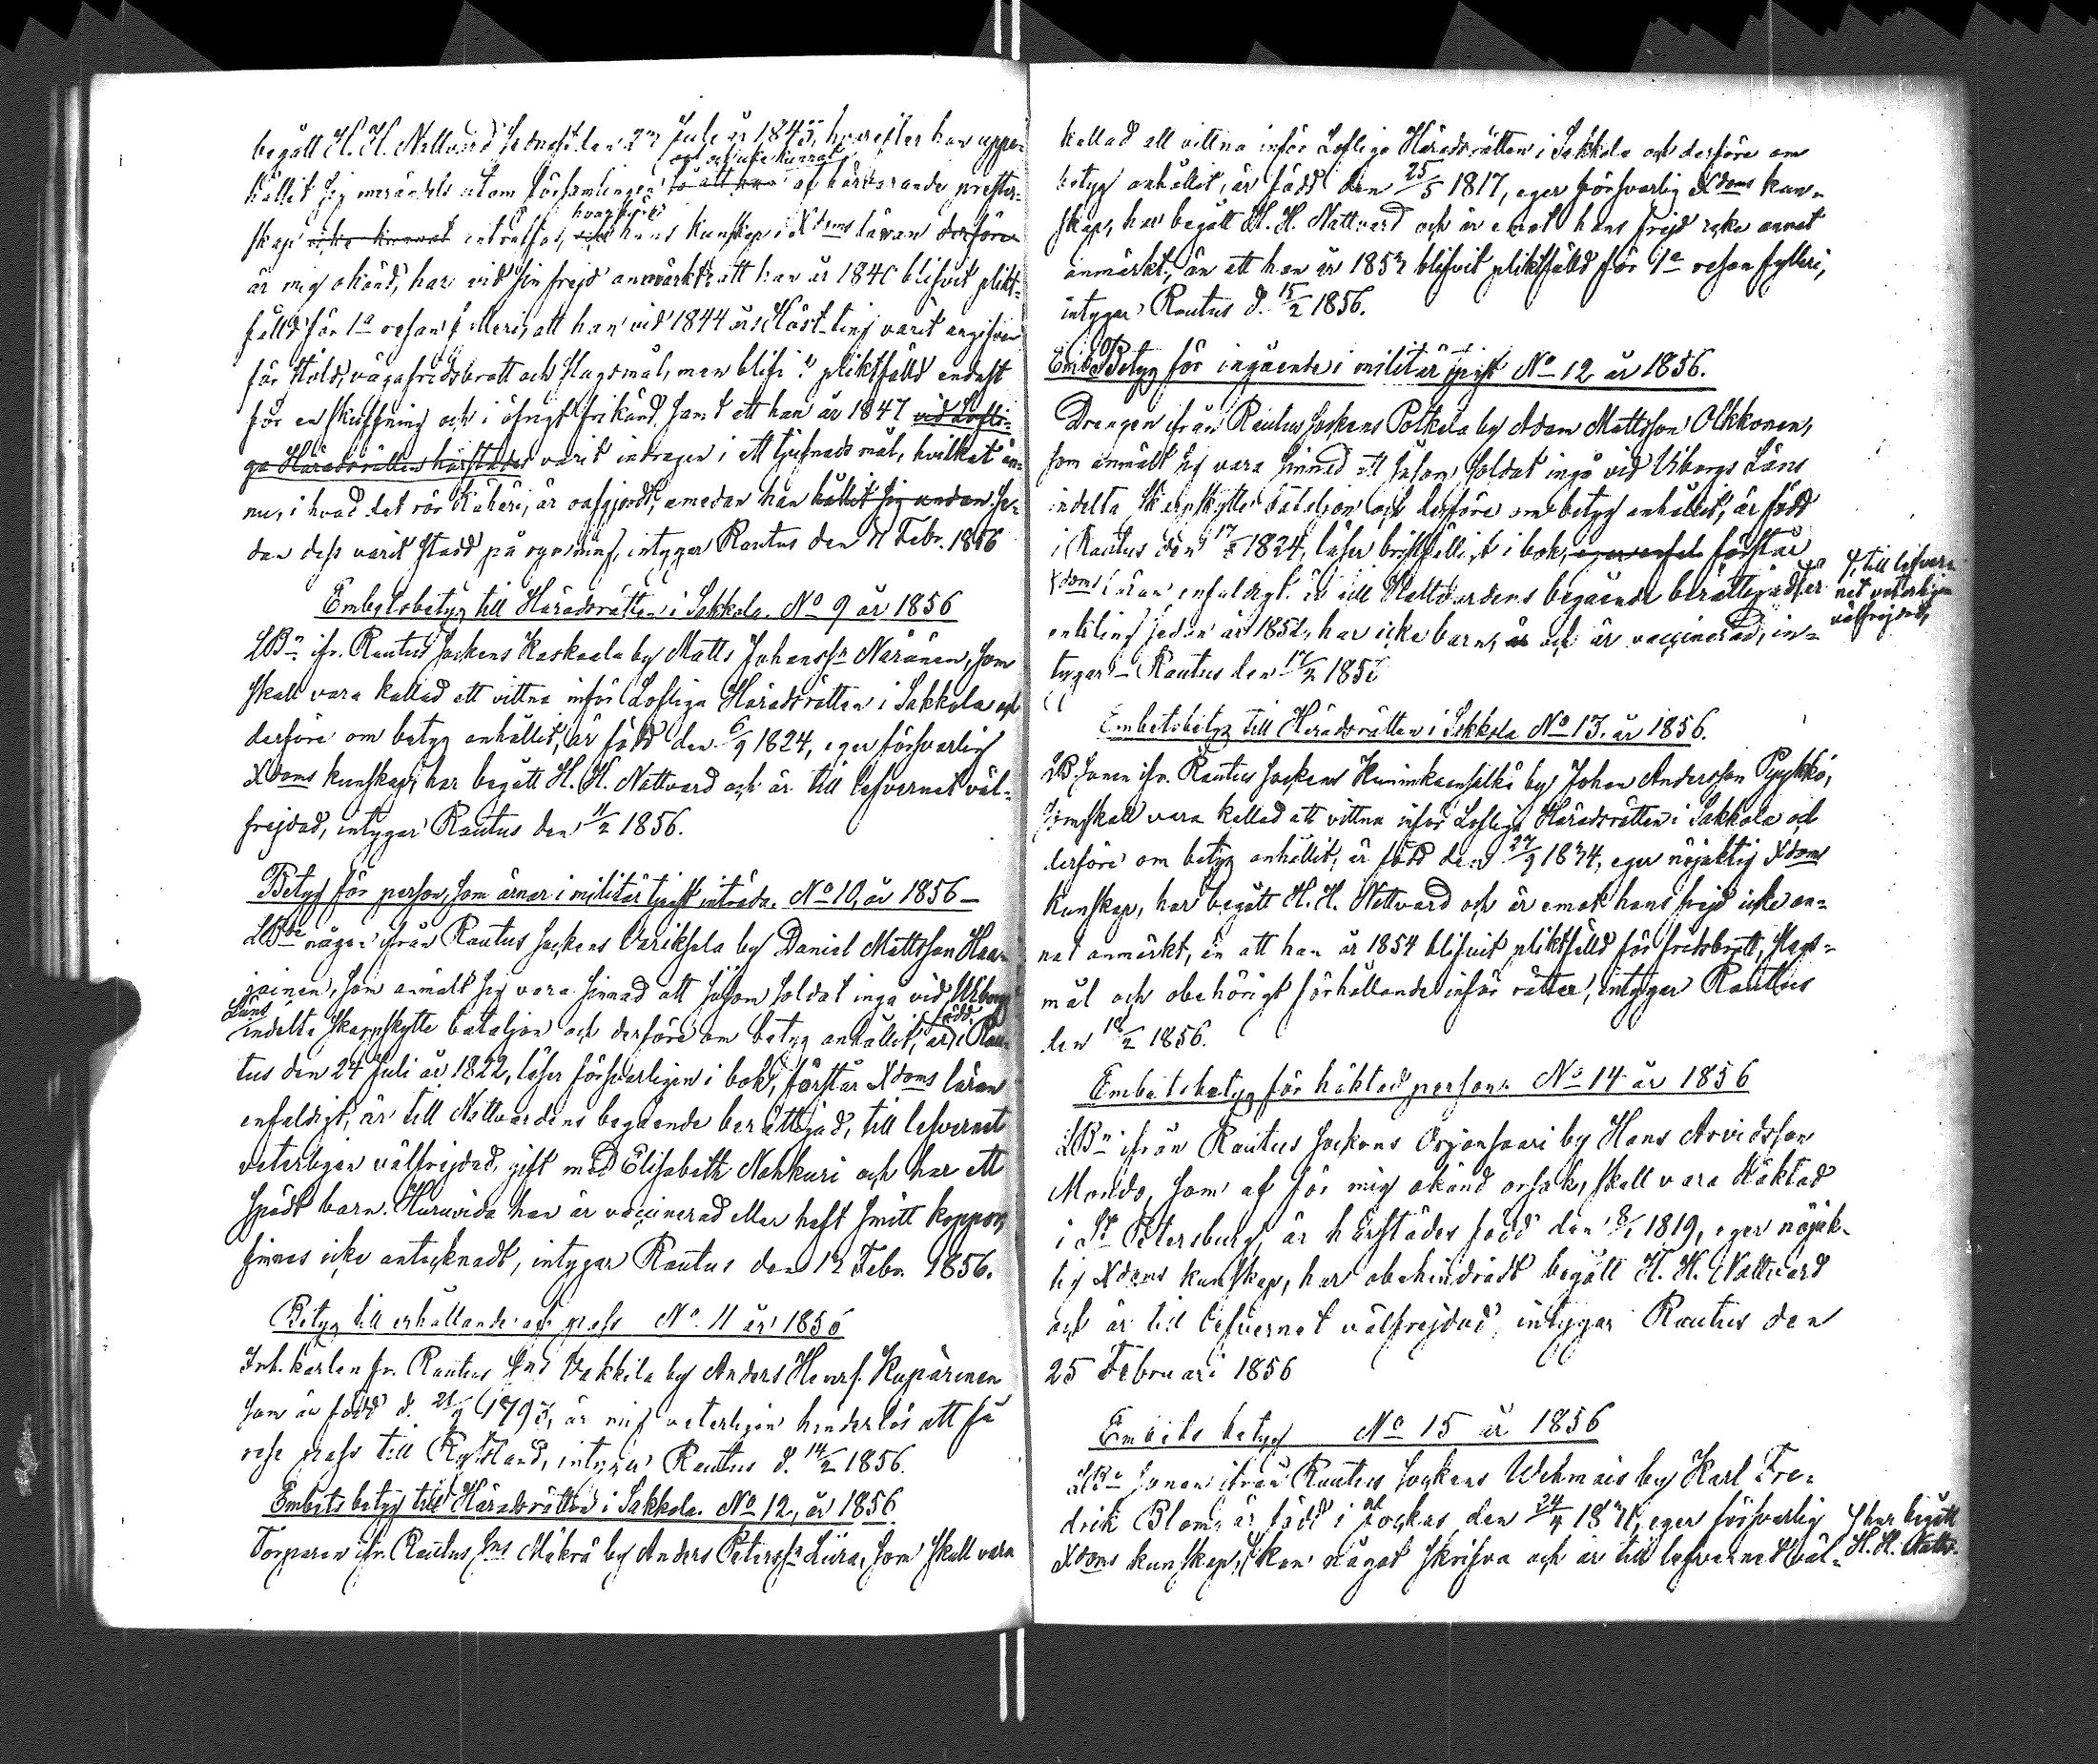 begått H. H. Nattvard sednast den 23 Juli år 1845, hvarefter han uppe-
hållit sig merändels utom församlingen så att han af härvarande prester-
och icke kunnat
skap icke kunnat anträffas, hvarföre hans kunskap i Xdoms läran derföre
är mig okänd, har vid sin frejd anmärkt: att han år 1840 blifvit plikt-
fälld för 1a resan fylleri, att han vid 1844 års Höst-ting varit angifven
för stöld, vägafridsbrott och slagsmål, men blifvit pliktfälld endast
för en skuffning och i öfrigt frikänd, samt att han år 1847 vid Lofli-
ga Häradsrätten härstädes varit indragen i ett tjufnads mål, hvilket än-
nu, i hvad det rör Käkeri, är oafgjordt, emedan han hållit sig undan se-
dan dess varit stadd på rymning, intygar Rautus den 7 Febr. 1856
Embetsbetyg till Häradsrätten i Sakkola. No 9 år 1856
LBn ifr. Rautus Sockens Raskaala by Matts Johanss:n Näränen, som
skall vara kallad att vittna inför Lofliga Häradsrätten i Sakkola och
derföre om betyg anhållit, är född den 6/9 1824, eger försvarlig
Xdoms kunskap, har begått H. H. Nattvard och är till lefvernet väl-
frejdad, intygar Rautus den 11/2 1856.
Betyg för person, som ärnar i militär tjenst inträda. No 10, år 1856 —
LBde mågen ifrån Rautus Sockens Variksela by Daniel Mattsson Haa-
jainen, som anmält sig vara sinnad att såsom soldat ingå vid Wiborgs
Läns
indelta skarpskytte bataljon och derföre om betyg anhållit, är född i Rau-
tus den 24 Juli år 1822, läser försvarligen i bok, förstår Xdoms läran
enfaldigt, är till Nattvardens begående berättigad, till lefvernet
veterligen välfrejdad, gift med Elisabeth Nahkuri och har ett
spädt barn. Huruvida han är vaccinerad eller haft smitt koppor,
finnes icke antecknadt, intygar Rautus den 12 Febr. 1856.
Betyg till erhållande af pass No 11 år 1856
Inh. karlen fr. Rautus Sns Vakkila by Anders Henrs. Kupärinen
som är född d. 21/9 1793, är mig veterligen hinderlös att få
rese pass till Ryssland, intygar Rautus d. 14/2 1856.
Embets betyg till Häradsrätten i Sakkola. No 12, år 1856
Torparen ifr. Rautus Sns Mäkrä by Anders Peterss:n Liira, som skall vara
kallad att vittna inför Lofliga Häradsrätten i Sakkola och derföre om
betyg anhållit, är född den 25/5 1817, eger försvarlig Xdoms kun-
skap, har begått H. H. Nattvard och är emot hans frejd icke annat
anmärkt, än att han år 1853 blifvit pliktfälld för 1a resan fylleri,
intygar Rautus d. 15/2 1856.
Betyg för ingående i militär tjenst No 12 år 1856.
Drengen ifrån Rautus Sockens Palkela by Adam Mattsson Olkkonen,
som anmält sig vara sinnad att såsom soldat ingå vid Wiborgs Läns
indelta Skarpskytte bataljon och derföre om betyg anhållit, är född
i Rautus den 1824, läser bristfälligt i bok, förstår
Xdoms läran enfaldigt, är till Nattvardens begående berättigad, är
till lefver-
net veterligen
välfrejdad,
enkling sedan år 1852, har icke barn, är och är vaccinerad, in-
tygar — Rautus den 17/2 1856
Embetsbetyg till Häradsrätten i Sakkola No 13. år 1856.
LB. Sonen ifr. Rautus Sockens Huuhkaanselkä by Johan Andersson Pyykkö,
som skall vara kallad att vittna inför Lofliga Häradsrätten i Sakkola och
derföre om betyg anhållit, är född den 27/9 1834, eger nöjaktig Xdoms
kunskap, har begått H. H. Nattvard och är emot hans frejd icke an-
nat anmärkt, än att han år 1854 blifvit pliktfälld för fridsbrott, slags-
mål och obehörigt förhållande inför rätten, intygar Rautus
den 18/2 1856.
Embetsbetyg för häktad person. No 14 år 1856
LBn ifrån Rautus Sockens Orjansaari by Hans Arvidsson
Mondo, som af för mig okänd orsak, skall vara häktad
i St Petersburg, är härstädes född den 8/1 1819, eger nöjak-
tig Xdoms kunskap, har obehindradt begått H. H. Nattvard
och är till lefvernet välfrejdad, intygar Rautus den
25 Februari 1856
Embets betyg No 15 år 1856
LBn Sonen ifrån Rautus Sockens Wehmais by Karl Fre-
drik Blom, är född i Sockn. den 24/4 1831, eger försvarlig
Xdoms kunskap, kan något skrifva och är till lefvernet väl-
har begått
H. H. Nattv.